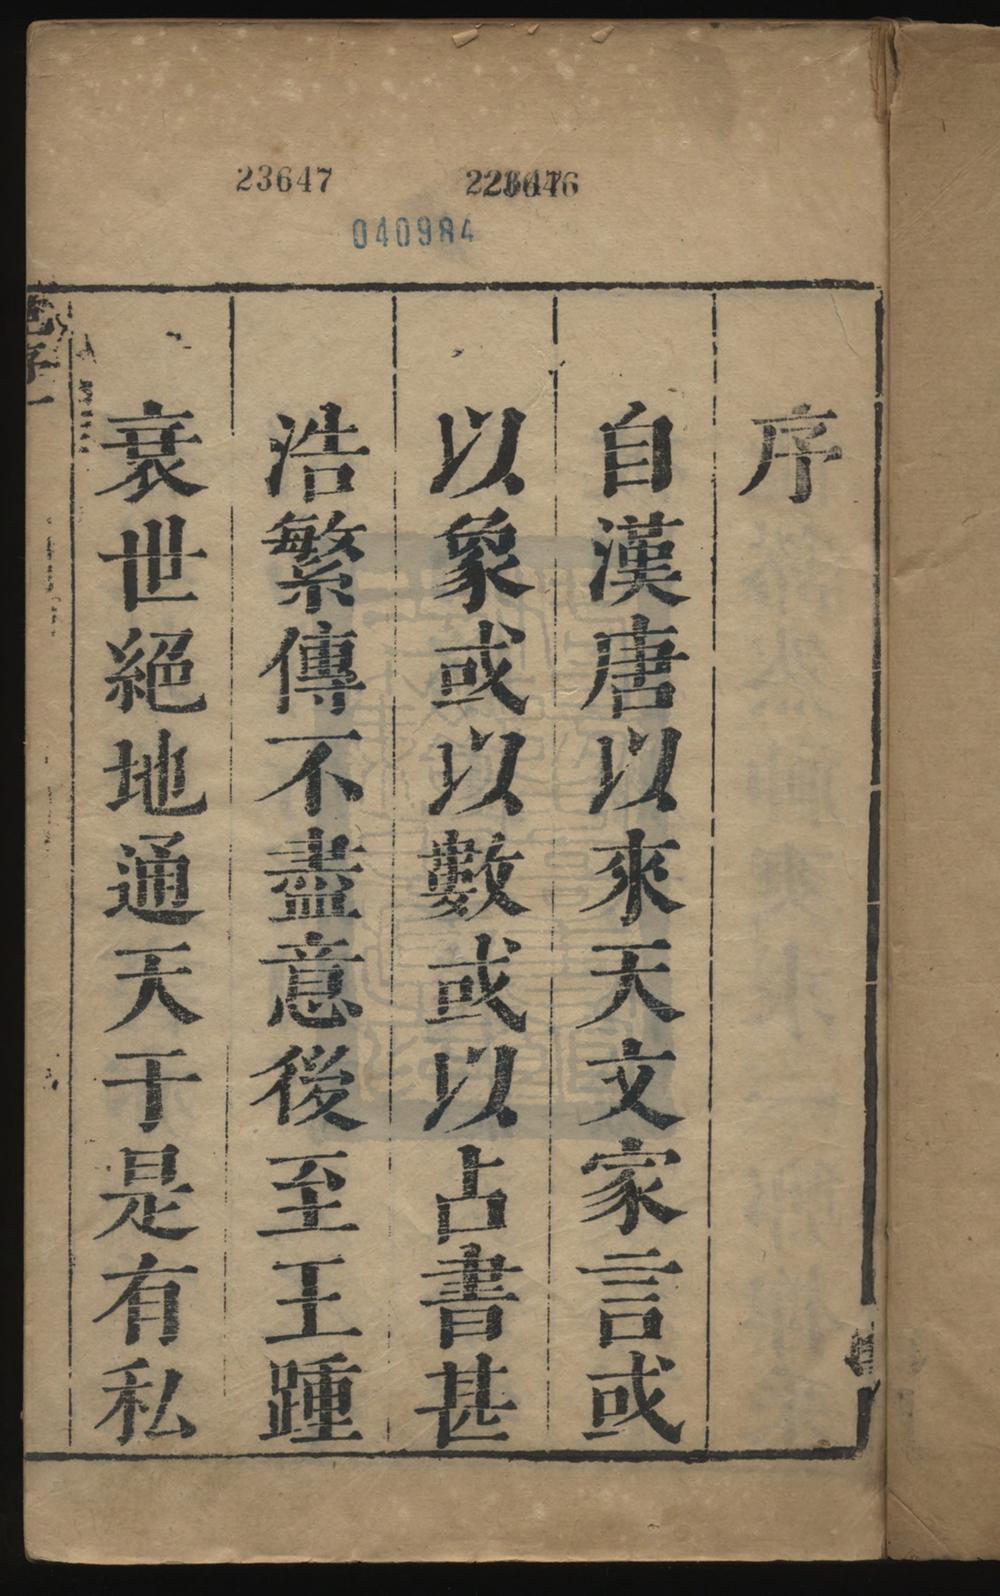 23647
040984
序
自漢唐以來天文家言或
以象或以數或以占書甚
浩繁傳不盡意後至王踵
衰世絕地通天于是有私